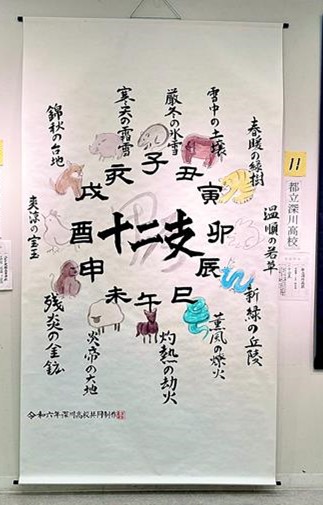 十二支
子
丑
寅
卯
辰
巳
午
未
申
酉
戌
亥
厳冬の氷雪
雪中の土壌
春暖の緑樹
温順の若草
新緑の丘陵
薫風の燎火
灼熱の劫火
炎帝の大地
残炎の金鉱
爽涼の宝玉
錦秋の台地
寒天の霜雪
令和六年深川高校共同制作
11
都立深川高校